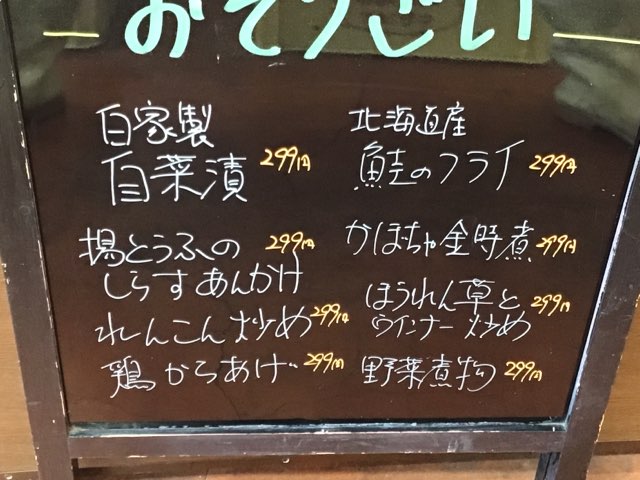 おそうざい
自家製
白菜漬 299円
揚とうふの 299円
しらすあんかけ
れんこん炒め 299円
鶏からあげ 299円
北海道産
鮭のフライ 299円
かぼちゃ金時煮 299円
ほうれん草と 299円
ウインナー炒め
野菜煮物 299円